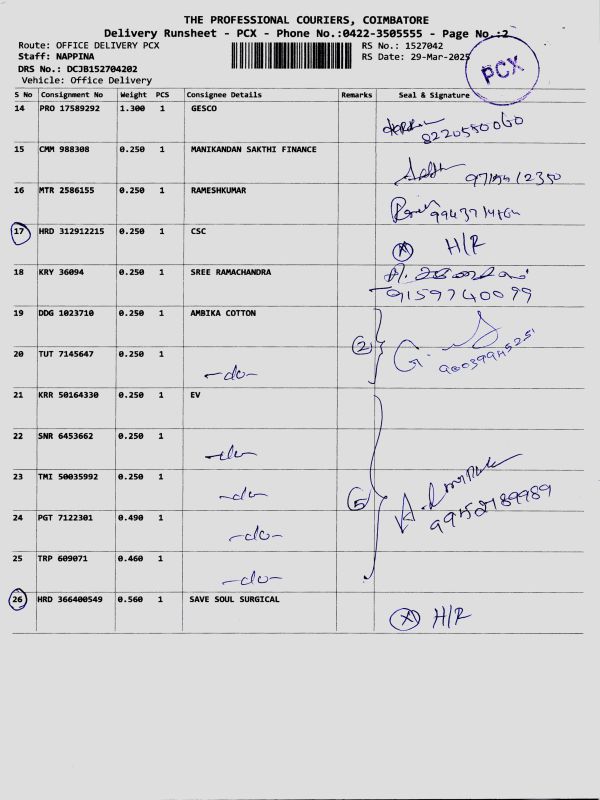 THE PROFESSIONAL COURIERS, COIMBATORE
Delivery Runsheet - PCX - Phone No.:0422-3505555 - Page No.:2
Route: OFFICE DELIVERY PCX
RS No.: 1527042
Staff: NAPPINA
RS Date: 29-Mar-2025
DRS No.: DCJB152704202
Vehicle: Office Delivery
PCX
S No Consignment No Weight PCS Consignee Details Remarks Seal & Signature
14 PRO 17589292 1.300 1 GESCO
8220550060
15 CMM 988308 0.250 1 MANIKANDAN SAKTHI FINANCE
16 MTR 2586155 0.250 1 RAMESHKUMAR
17 HRD 312912215 0.250 1 CSC
X H/R
18 KRY 36094 0.250 1 SREE RAMACHANDRA
9159740099
19 DDG 1023710 0.250 1 AMBIKA COTTON
2
20 TUT 7145647 0.250 1 -do-
21 KRR 50164330 0.250 1 EV
22 SNR 6453662 0.250 1 -do-
23 TMI 50035992 0.250 1 -do-
5
24 PGT 7122301 0.490 1 -do-
25 TRP 609071 0.460 1 -do-
26 HRD 366400549 0.560 1 SAVE SOUL SURGICAL
X H/R